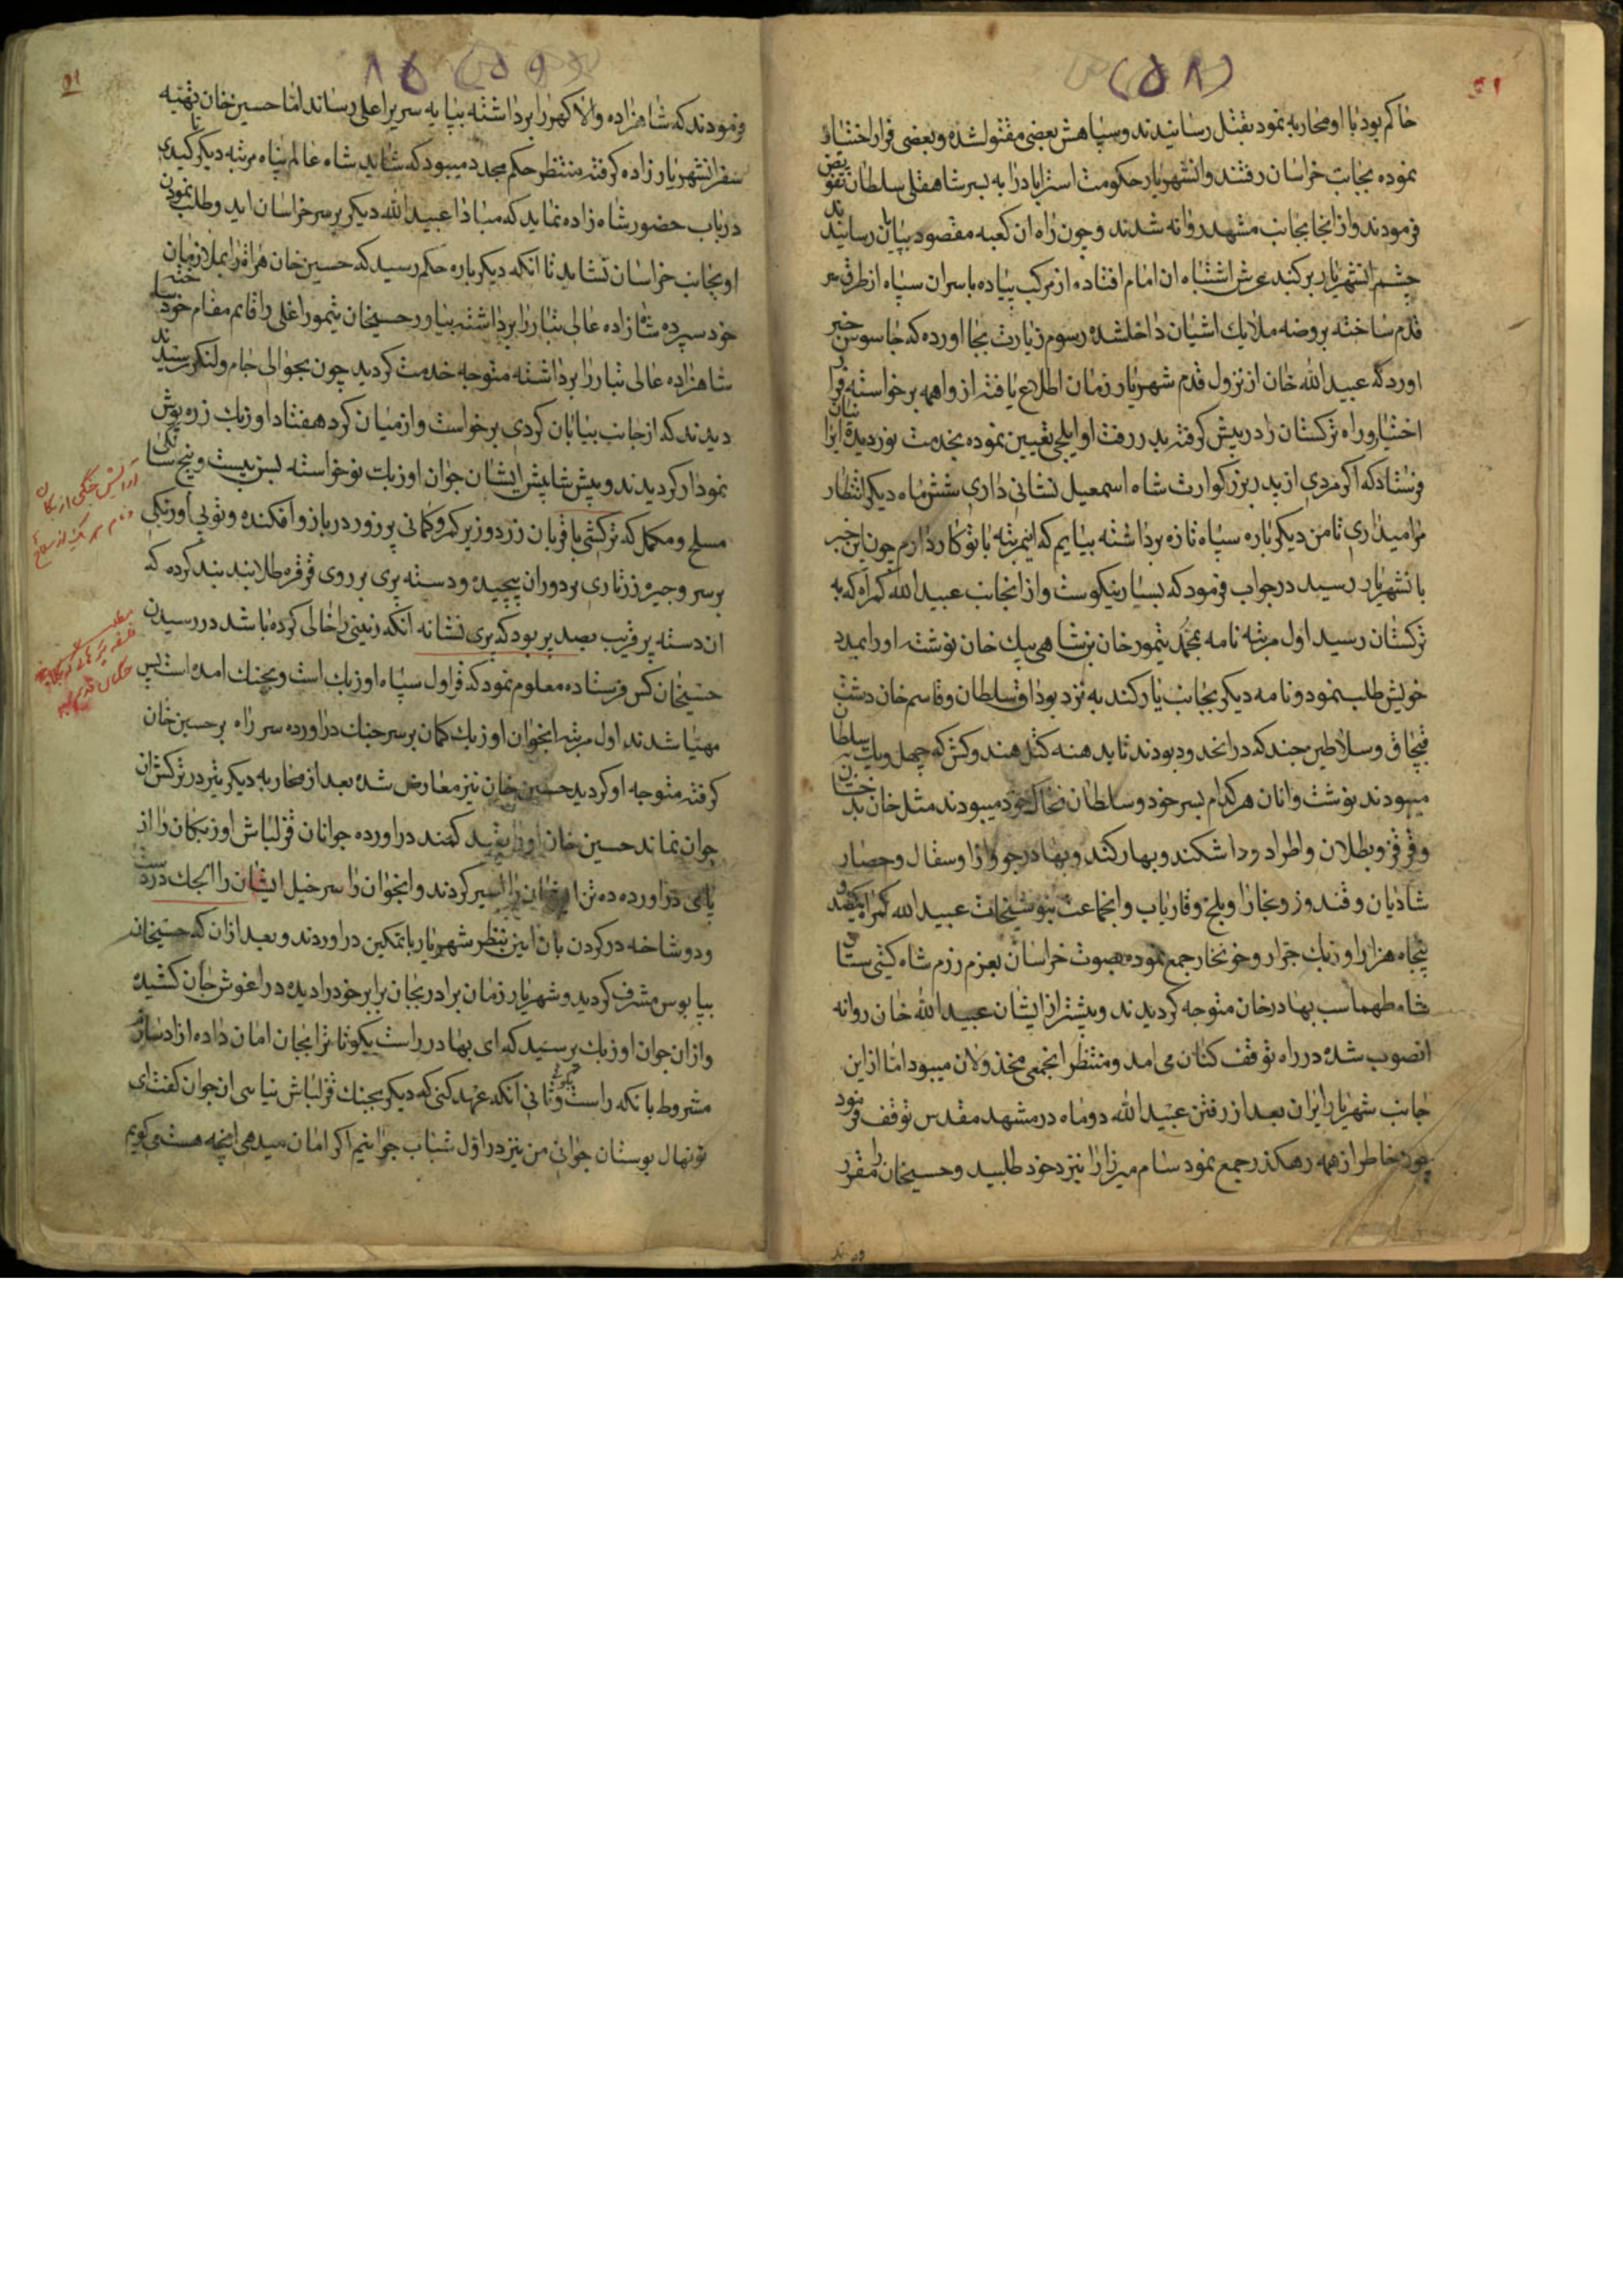 (۵۸)
حاکم بود با او محاربه نمود بقتل رسانیدند و سپاهش بعضی مقتول شده و بعضی فرار اختیار
نموده بجانب خراسان رفتند و انشهریار حکومت استراباد را به پسر شاهقلی سلطان تفویض
فرمودند و از انجا بجانب مشهد روانه شدند و چون راه ان کعبه مقصود بپایان رسانیدند
چشم انشهریار بر کنبد عرش اشتباه ان امام افتاده از مرکب پیاده با سران سپاه از طرق
قدم ساخته بروضه ملایك اشیان داخلشده رسوم زیارت بجا اورده که جاسوس خبر
اورد که عبید الله خان از نزول قدم شهریار زمان اطلاع یافته از واهمه برخواسته فرار
اختیار و راه ترکستان را در پیش کرفته بدر رفت او ایلچی تعیین نموده بخدمت نوردیده
فرستاد که اکر مردی از پدر بزرکوارت شاه اسمعیل نشانی داری شش ماه دیکر انتظار
مرا میداری تا من دیکر باره سپاه تازه برداشته بیایم که اینمرتبه با تو کار دارم چون این خبر
بانشهریار رسید در جواب فرمود که بسیار نیکوست و از انجانب عبید الله کمراه که به
ترکستان رسید اول مرتبه نامه بمحمد تیمور خان بن شاهی بیك خان نوشته او را بمدد
خویش طلب نمود و نامه دیکر بجانب یارکند به نزد بوداق سلطان و قاسم خان دشت
قبچاق و سلاطین چند که در انحدود بودند تا بد هنه کتل هندوکش که چهل و یك سلطان
میبودند نوشت و انان هر کدام بسر خود و سلطان خود میبودند مثل خان
و قرقز و بطلان و اطراد و داشکند و بهارکند و بهادرجو و از اوسفال و حصار
شادیان و قندوز و بخارا و بلخ و فاریاب و انجماعت عبید الله کمراه
پنجاه هزار اوزبك جرار و خونخوار جمع نموده بصوت خراسان بعزم رزم شاه کیتی ستان
شاه طهماسب بهادر خان متوجه کردیدند و پیشتر از ایشان عبید الله خان روانه
انصوب شده در راه توقف کنان می امد و منتظر انجمعی مخذولان میبود اما از این
جانب شهریار ایران بعد از رفتن عبید الله دو ماه در مشهد مقدس توقف فرمود
چون خاطر از همه رهکذر جمع نمود سام میرزا را نیزد خود طلبید و حسینخان را مقرر
(۵۹)
فرمودند که شاهزاده والا کهر را برداشته بپایه سریر اعلی رساند اما حسین خان تهیه
سفر انشهریار زاده کرفته منتظر حکم مجدد میبود که شاید شاه عالم پناه مرتبه دیکر
در باب حضور شاه زاده نماید که مبادا عبید الله دیکر بر سر خراسان اید و طلب نمودن
او بجانب خراسان نشاید تا انکه دیکر باره حکم رسید که حسین خان هراة را بملازمان
خود سپرده شاهزاده عالی تبار را برداشته بیاور حسینخان تیمور اغلی را قائم مقام خود
شاهزاده عالی تبار را برداشته متوجه خدمت کردید چون بحوالی جام و لنکر رسیدند
دیدند که از جانب بیابان کردی برخواست و از میان کرد هفتاد اوزبك زره پوش
نمودار کردیدند و پیش شاپیش ایشان جوان اوزبك نوخواسته بسن بیست و پنج
مسلح و مکمل که ترکشی با قربان زردوز بر کمر و کمانی پر زور در بازو افکنده و توبی
بر سر و جیره زرتاری بر دوران پیچیده و دسته پری بر روی قرقره طلا بند بند کرده که
ان دسته پر قریب بصد پر بود که پری نشانه انکه زینی را خالی کرده باشد در رسیدن
حسینخان کس فرستاده معلوم نمود که قراول سپاه اوزبك است و بجنك امده است پس
مهیا شدند اول مرتبه انجوان اوزبك کمان بر سر جنك دراورده سر راه بر حسین خان
کرفته متوجه او کردید حسین خان نیز معارض شده بعد از محاربه دیکر تیر در ترکش ان
جوان نماند حسین خان او را بقید کمند دراورده جوانان قزلباش اوزبکان را از
پای دراورده ده تن را اسیر کردند و انجوان را سرخیل ایشان را
و دو شاخه در کردن بان ایین بنظر شهریار با تمکین دراوردند و بعد ازان که حسینخان
بپابوس مشرف کردید و شهریار زمان برادر بجان برابر خود را دیده در اغوش جان کشیده
و از ان جوان اوزبك پرسید که ای بهادر راست بکو تا ترا بجان امان داده ازاد سازم
مشروط بانکه راست بکوئی و ثانی انکه عهد کنی که دیکر بجنك قزلباش نیایی ان جوان کفت ای
نونهال بوستان جوانی من نیز در اول شباب جوانیم اکر امان میدهی انچه هست میکویم